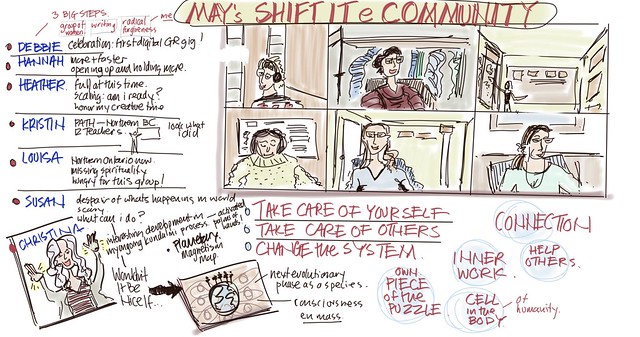 MAY's SHIFT IT e COMMUNITY
3 BIG STEPS
group of women
writing
radical forgiveness
me
DEBBIE
celebration: first digital GR gig!
HANNAH
more + faster
opening up and holding more.
HEATHER
Full at this time.
Scaling: am i ready?
honour my creative time
KRISTIN
PATH - Northern BC
12 Teachers.
look what i did
LOUISA
Northern Ontario now.
missing spirituality
hungry for this group!
SUSAN
despair of what's happening in world
scary
what can i do?
CHRISTINA
interesting development in
my ongoing kundalini process.
activated
palms of hands
Planetary
magnetism
map.
Wouldn't
it be
nice if...
next evolutionary
phase as a species.
consciousness
en mass.
TAKE CARE OF YOURSELF
TAKE CARE OF OTHERS
CHANGE THE SYSTEM.
CONNECTION
INNER
WORK.
HELP
OTHERS.
OWN
PIECE
of the
PUZZLE
CELL
in the
BODY
of
humanity.